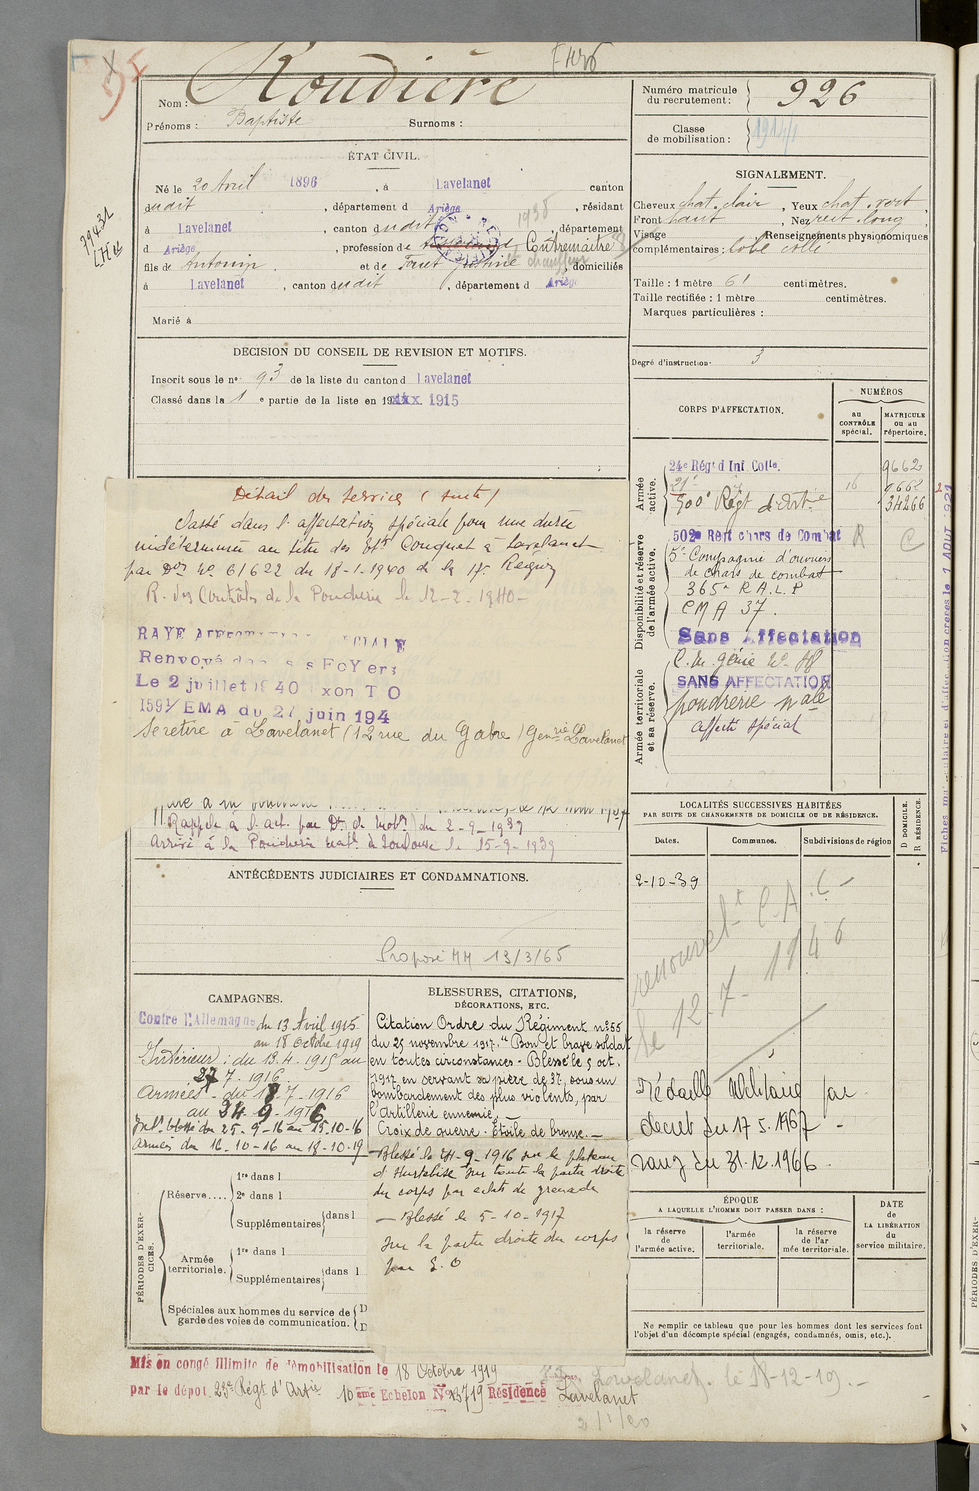 Nom : Roudière
Prénoms : Baptiste Surnoms :
ÉTAT CIVIL.
Né le 20 Avril 1896, à Lavelanet canton
dudit, département d Ariège, résidant
à Lavelanet, canton dudit, département
d Ariège, profession de Contremaître
1938
chauffeur
fils de Antonin et de Justine, domiciliés
à Lavelanet, canton dudit, département d Ariège
Marié à
DECISION DU CONSEIL DE REVISION ET MOTIFS.
Inscrit sous le n° 93 de la liste du canton d Lavelanet
Classé dans la 1e partie de la liste en 1915
Détail des services (suite)
Passé dans l'affectation spéciale pour une durée
indéterminée au titre des Ets Couquet à Lavelanet
par Don No 61622 du 18-1-1940 de la 17e Région
R. des Contrôles de la Poudrerie le 12-2-1940-
RAYE AFFECTATION SPECIALE
Renvoyé dans ses FOYers
Le 2 juillet 1940
1591/EMA du 27 juin 194
Se retire à Lavelanet (12 rue du Gabre) Gendrie Lavelanet
Rappelé à l'act. par Dt de Mobon du 2-9-1939
Arrivé à la Poudrerie natle de Toulouse le 15-9-1939
ANTÉCÉDENTS JUDICIAIRES ET CONDAMNATIONS.
Proposé MM 13/3/65
CAMPAGNES.
Contre l'Allemagne du 13 Avril 1915
au 18 Octobre 1919
Intérieur : du 13.4.1915 au
27 7.1916
Armées - du 18 7-1916
au 24-9-1916
Int. blessé du 25-9-16 au 15-10-16
Armées du 16-10-16 au 18-10-19
BLESSURES, CITATIONS,
DÉCORATIONS, ETC.
Citation Ordre du Régiment n° 55
du 25 novembre 1917. "Bon et brave soldat
en toutes circonstances - Blessé le 5 oct.
1917 en servant sa pièce de 37, sous un
bombardement des plus violents, par
l'Artillerie ennemie. —
Croix de guerre - Étoile de bronze. —
Blessé le 24-9-1916 sur le plateau
d'Hurtebise sur toute la partie droite
du corps par eclats de grenade
— Blessé le 5-10-1917
sur la partie droite du corps
par E.O
PÉRIODES D'EXERCICES.
Réserve....
1re dans l
2e dans l
Supplémentaires dans l
Armée
territoriale.
1re dans l
Supplémentaires dans l
Spéciales aux hommes du service de
garde des voies de communication.
Mis en congé illimité de démobilisation le 18 Octobre 1919
par le dépôt 23e Régt d'Artie 10eme Echelon No 13719 Résidence Lavelanet
Lavelanet. le 18-12-19. —
2/1/20
Numéro matricule
du recrutement : 926
Classe
de mobilisation : 1914/1
SIGNALEMENT.
Cheveux chat. clair, Yeux chat. vert,
Front haut, Nez rect. long
Visage Renseignements physionomiques
complémentaires : lobe collé
Taille : 1 mètre 61 centimètres.
Taille rectifiée : 1 mètre centimètres.
Marques particulières :
Degré d'instruction : 3
CORPS D'AFFECTATION.
NUMÉROS
au
CONTRÔLE
spécial.
MATRICULE
ou au
répertoire.
Armée
active.
24e Régt d Inf Colle. 9662
21e 16 9662
500e Régt d'Artie 34266
Disponibilité et réserve
de l'armée active.
502e Regt chars de Combat R C
5e Compagnie d'ouvriers
de chars de combat
365e R.A.L.P
CMA 37.
Sans Affectation
Armée territoriale
et sa réserve.
C. du génie No 48
SANS AFFECTATION
poudrerie nale
affecté spécial
LOCALITÉS SUCCESSIVES HABITÉES
PAR SUITE DE CHANGEMENTS DE DOMICILE OU DE RÉSIDENCE.
Dates.
Communes.
Subdivisions de région
D DOMICILE.
R RÉSIDENCE.
2-10-39
renouvelt C.A.C-
le 12-7-1946
Médaille Militaire par
décret du 17 5.1967 -
rang du 31.12.1966.
ÉPOQUE
A LAQUELLE L'HOMME DOIT PASSER DANS :
DATE
de
LA LIBÉRATION
du
service militaire.
la réserve
de
l'armée active.
l'armée
territoriale.
la réserve
de l'ar
mée territoriale.
Ne remplir ce tableau que pour les hommes dont les services font
l'objet d'un décompte spécial (engagés, condamnés, omis, etc.).